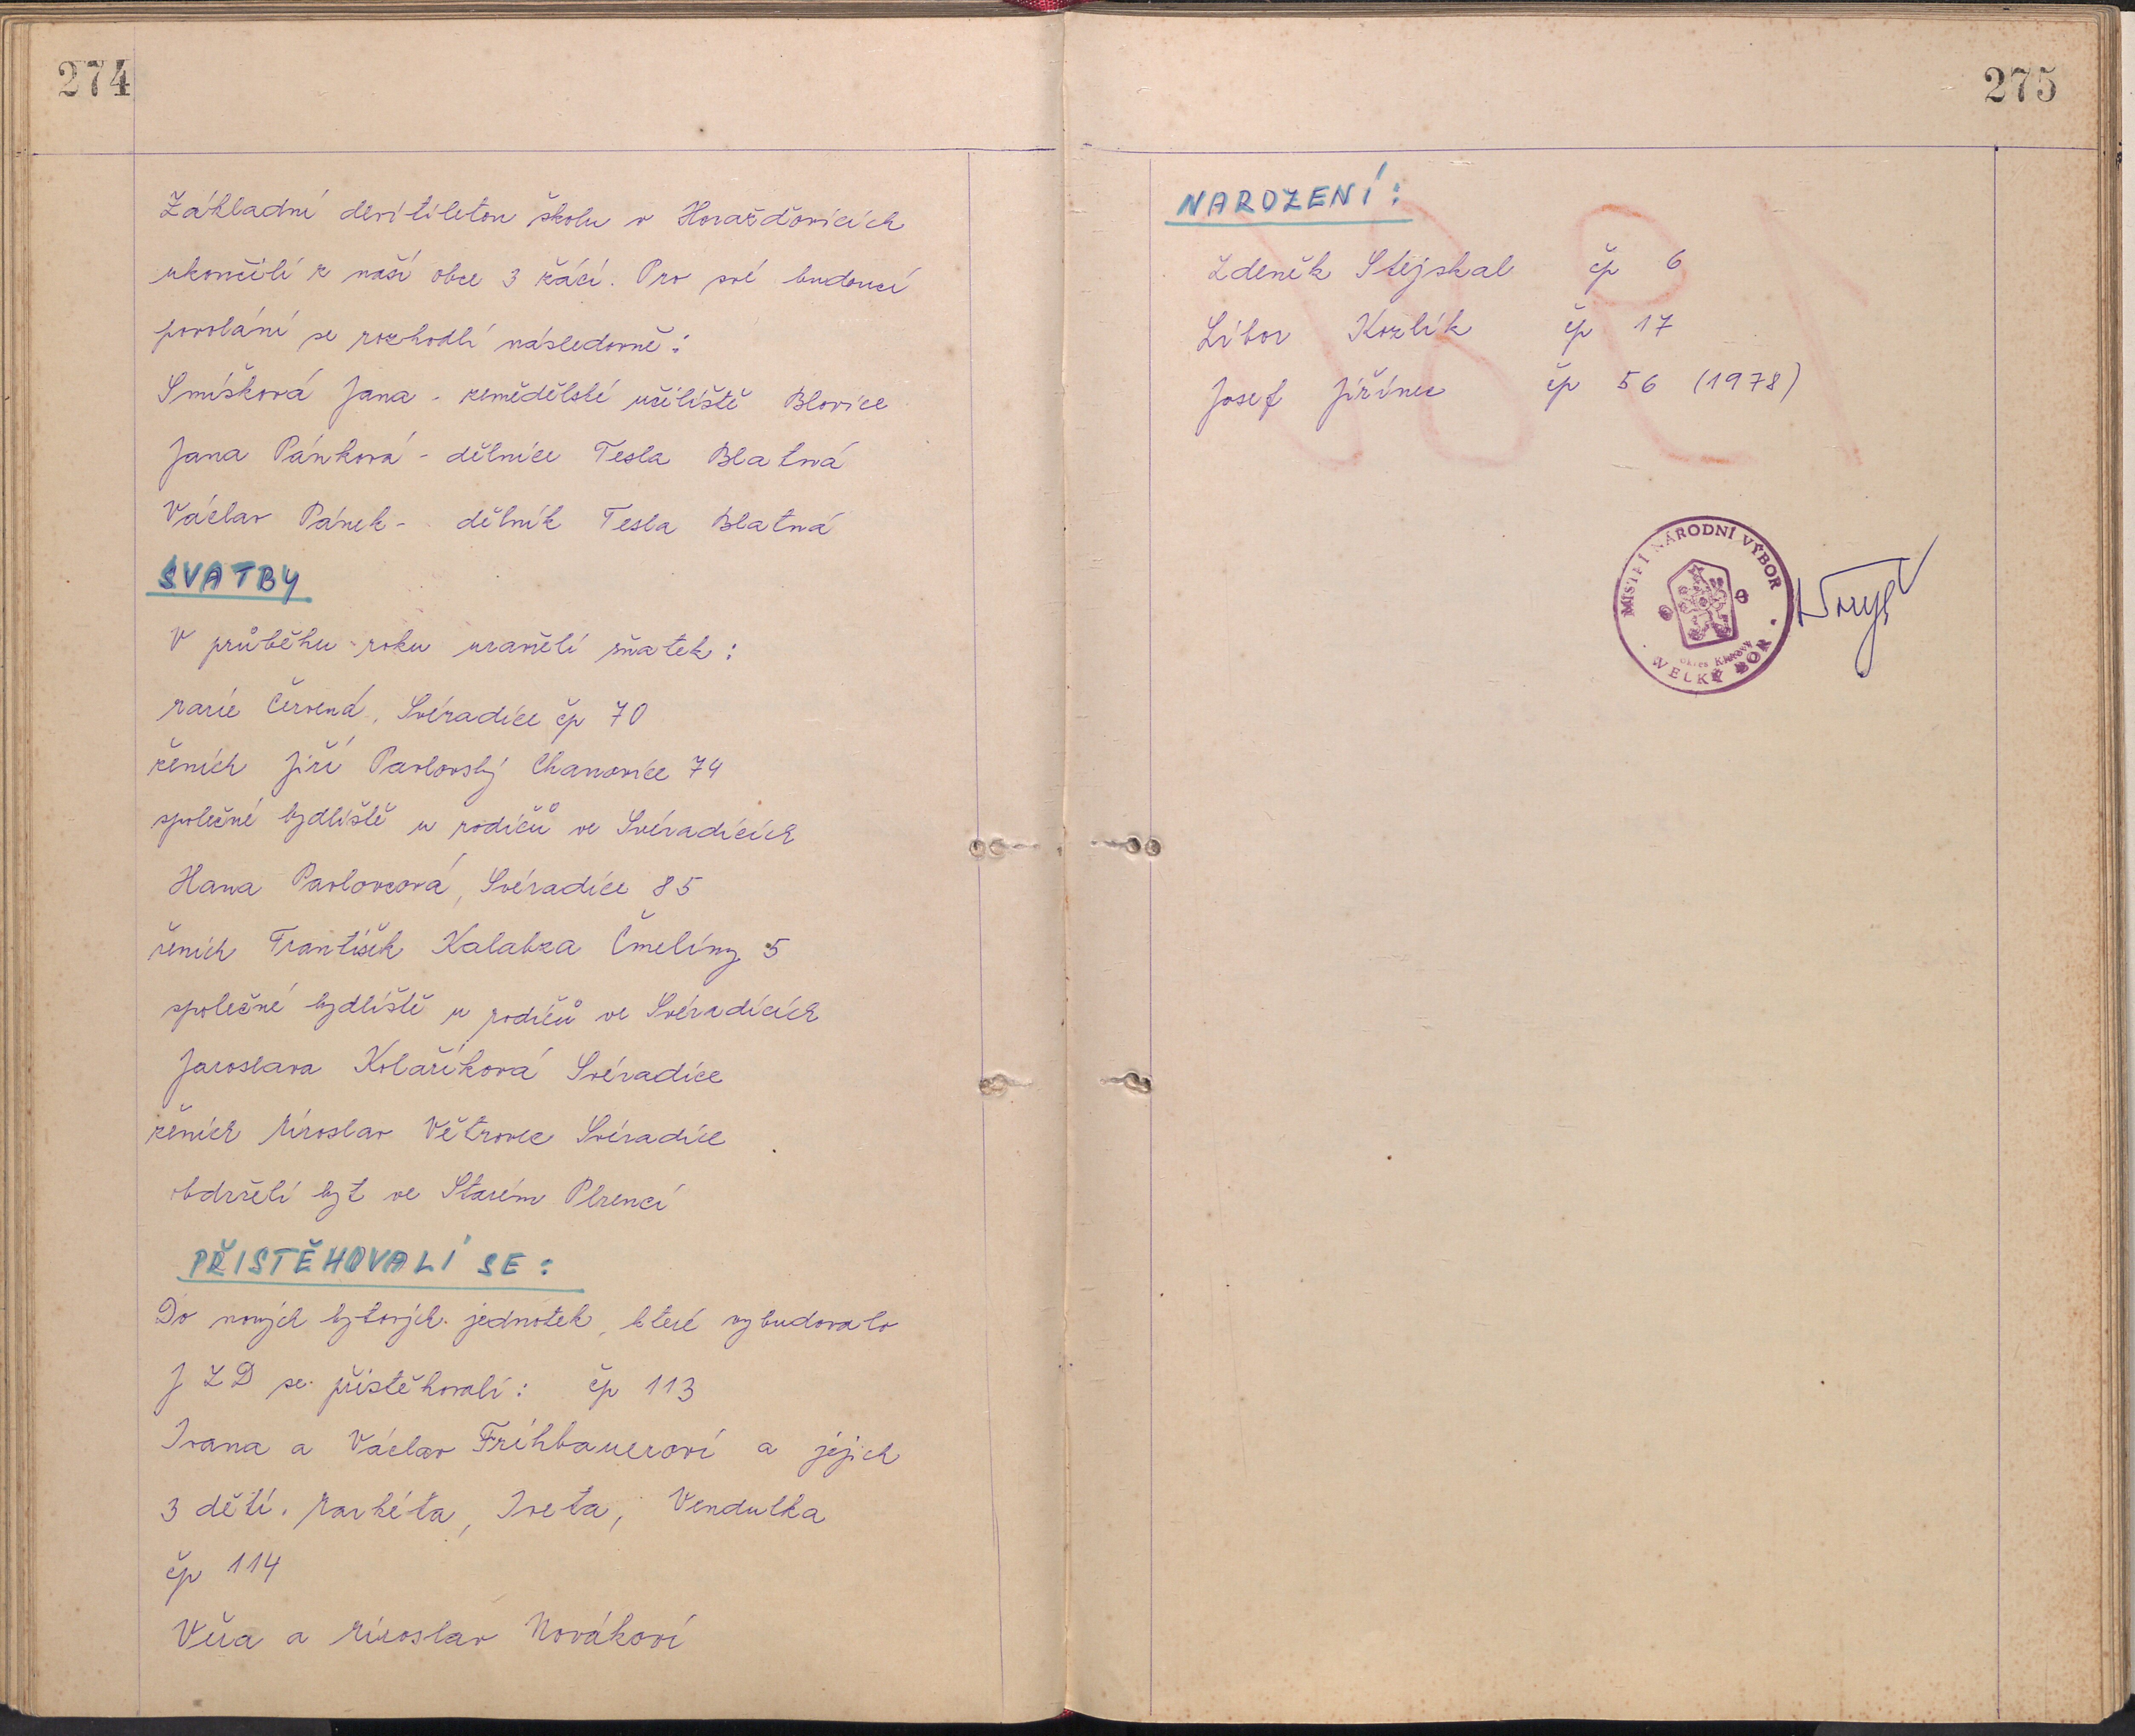 274
Základní devítiletou školu v Horažďovicích
ukončili z naší obce 3 žáci. Pro své budoucí
povolání se rozhodli následovně:
Smíšková Jana - zemědělské učiliště Blovice
Jana Pánková - dělnice Tesla Blatná
Václav Pánek - dělník Tesla Blatná
SVATBY
V průběhu roku uzavřeli sňatek:
Marie Červená, Svéradice čp 70
ženich Jiří Pavlovský Chanovice 74
společné bydliště u rodičů ve Svéradicích
Hana Pavlovcová, Svéradice 85
ženich František Kalabza Čmelíny 5
společné bydliště u rodičů ve Svéradicích
Jaroslava Kolaříková Svéradice
ženich Miroslav Větrovec Svéradice
obdrželi byt ve Starém Plzenci
PŘISTĚHOVALI SE:
Do nových bytových jednotek, které vybudovalo
JZD se přistěhovali: čp 113
Ivana a Václav Frihbauerovi a jejich
3 děti. Markéta, Iveta, Vendulka
čp 114
Věra a Miroslav Novákovi
275
NAROZENÍ:
Zdeněk Stejskal čp 6
Libor Kozlík čp 17
Josef Jiřinec čp 56 (1978)
MÍSTNÍ NÁRODNÍ VÝBOR
okres Klatovy
VELKÝ BOR